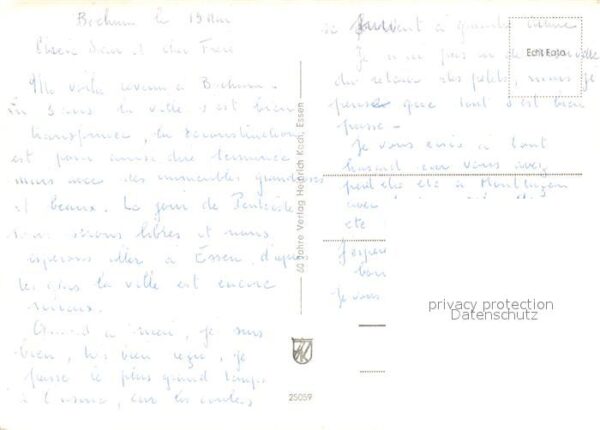 Bochum le 19 Mai
Chère Sœur et cher Frère
Me voilà revenu à Bochum.
En 3 ans la ville s'est bien
transformée, la reconstruction
est pour ainsi dire terminée
mais avec des immeubles grandioses
et beaux. Le jour de Pentecôte
nous serons libres et nous
espérons aller à Essen, d'après
les gens la ville est encore
mieux.
Quand à moi, je suis
bien, très bien reçu, je
passe le plus grand temps
à l'usine, car les
60 Jahre Verlag Heinrich Koch, Essen
25059
Echt Foto
à quatre
Je n'ai pas eu de nouvelle
du retour des petits, mais je
pense que tout s'est bien
passé.
Je vous envoie à tout
hasard car vous avez
peut être été à Montluçon
avec
été
J'espère
bon
Je vous
privacy protection
Datenschutz